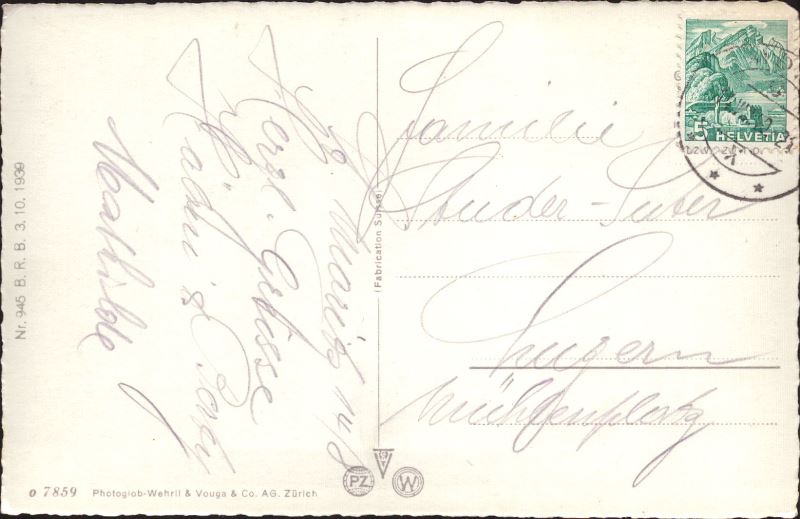 St. Moritz 14/8
Herzl. Grüsse
Mathilde
Familie
Studer-Suter
Luzern
Mühlenplatz
5 HELVETIA
(Fabrication Suisse)
Nr. 945 B. R. B. 3. 10. 1939
o 7859 Photoglob-Wehrli & Vouga & Co. AG. Zürich
PZ
W